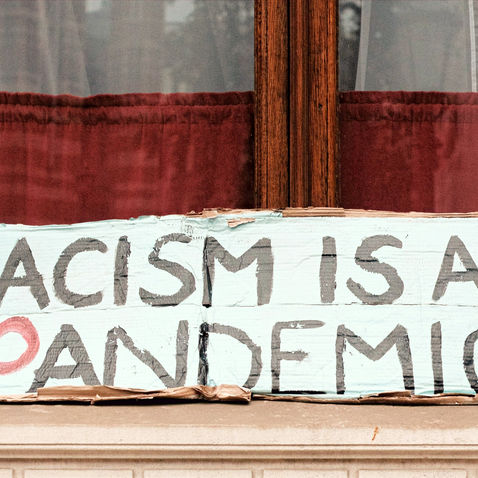 ACISM IS A
PANDEMIC